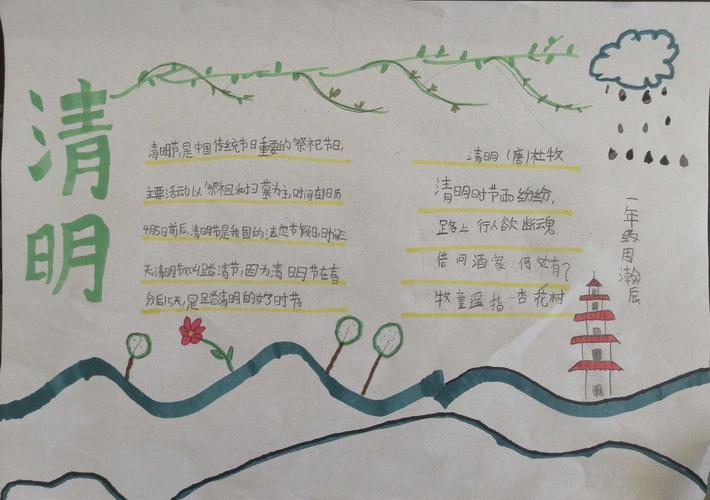 清明
清明节是中国传统节日重要的祭祀节日,
主要活动以祭祖和扫墓为主,时间在阳历
4月5日前后,清明节是我国的法定节假日,时间三
天清明节又叫踏清节,因为清明节在春
分后15天,是踏清明的好时节
清明 (唐)杜牧
清明时节雨纷纷,
路上行人欲断魂
借问酒家何处有?
牧童遥指杏花村
一年级周瀚辰